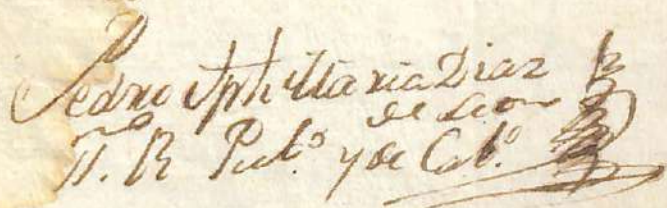 Pedro Jph María Diaz
de Leon
Tte. R Pubco. y de Cabdo.